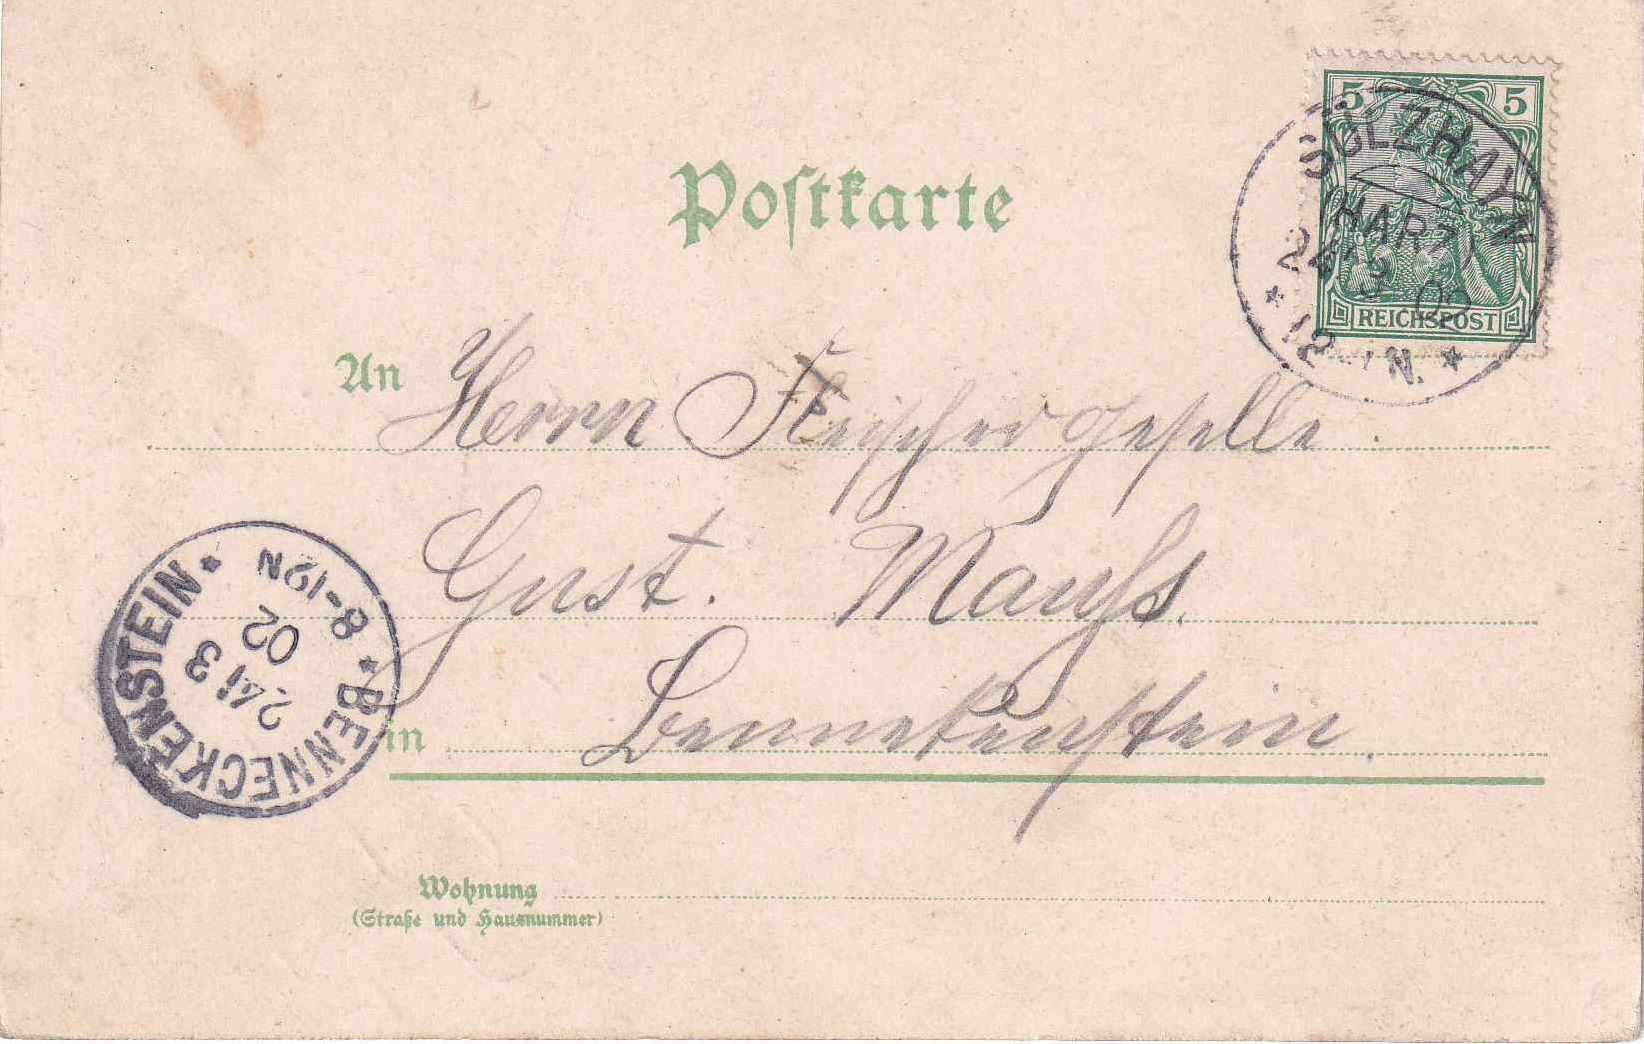 5 5
SÜLZHAYN
(HARZ)
24 3 02
* 12-1N. *
REICHSPOST
Postkarte
An Herrn Fleischer Geselle.
Gust. Mauß.
in Bennekenstein.
* BENNECKENSTEIN *
24/3
02
8-12N
Wohnung
(Straße und Hausnummer)